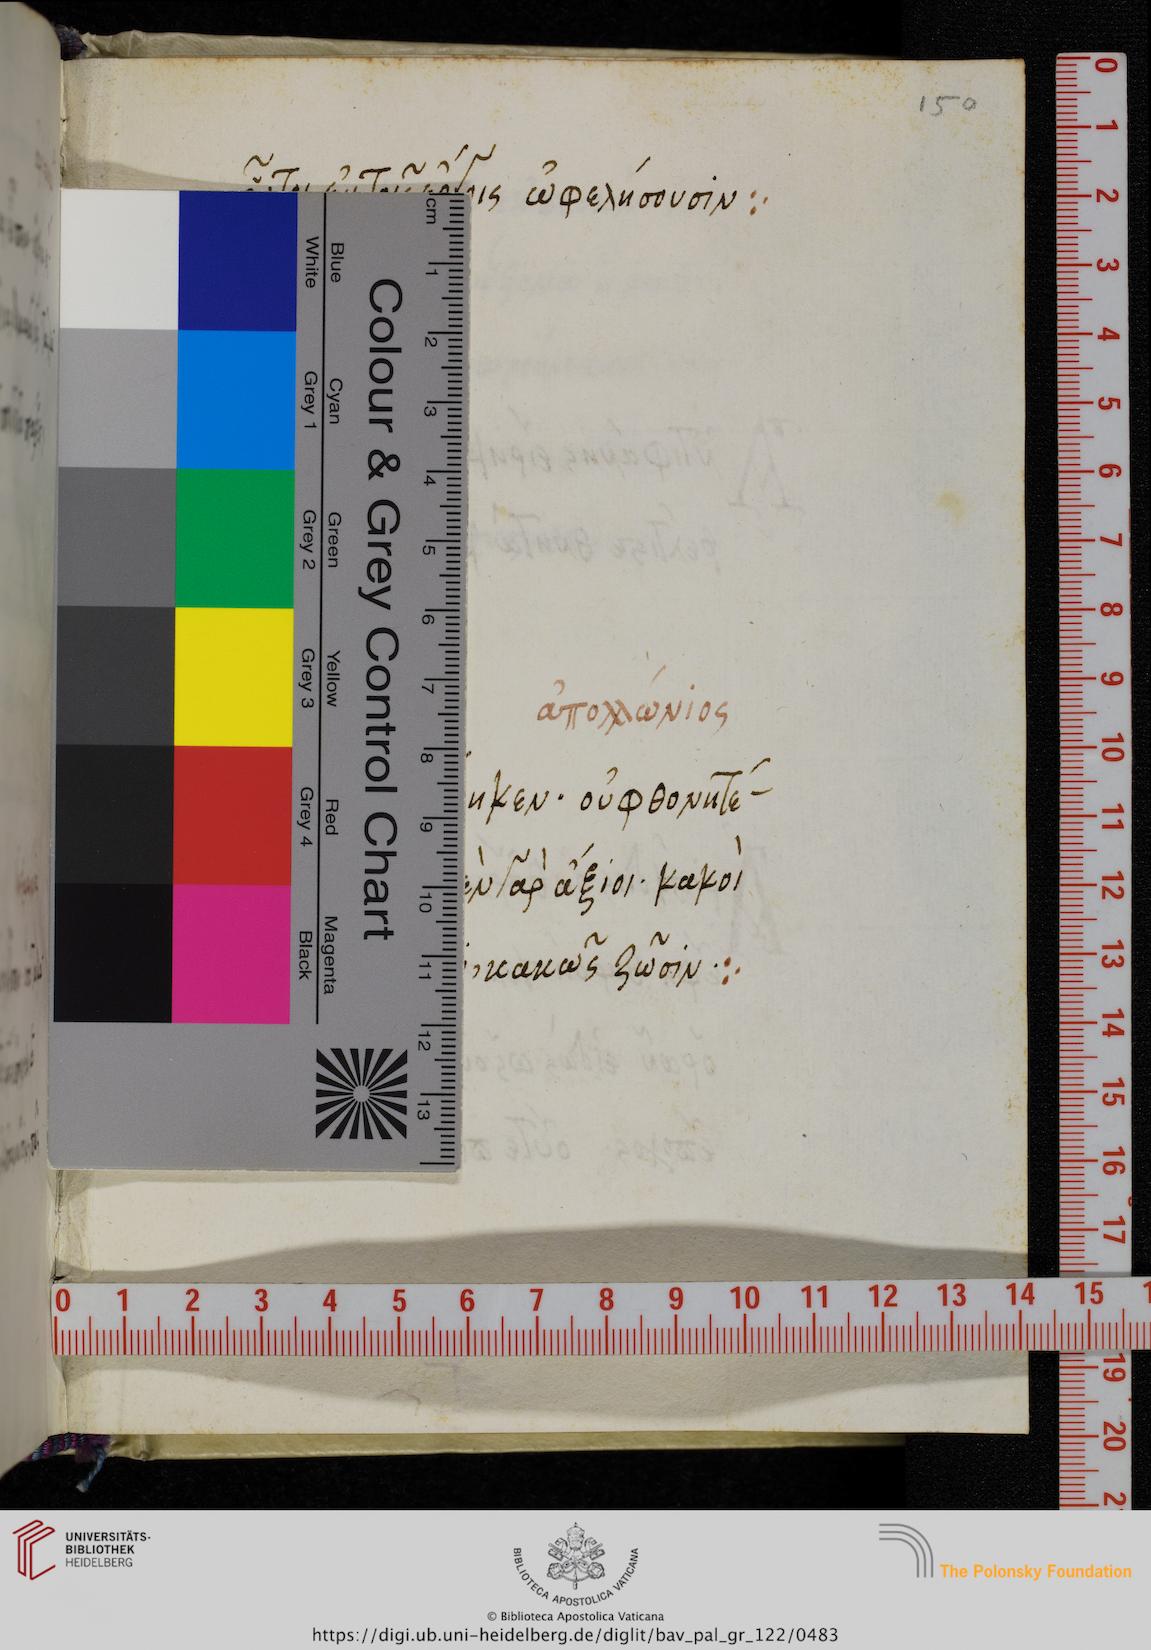 150
ὠφελήσουσιν :·
ἀπολλώνιος
ηκεν · οὐ φθονητέ
ὲν γὰρ ἄξιοι · κακοὶ
κακῶς ζῶσιν ·:·
Colour & Grey Control Chart
Blue
White
Cyan
Grey 1
Green
Grey 2
Yellow
Grey 3
Red
Grey 4
Magenta
Black
cm 1 2 3 4 5 6 7 8 9 10 11 12 13
0 1 2 3 4 5 6 7 8 9 10 11 12 13 14 15 16 17 19 20
0 1 2 3 4 5 6 7 8 9 10 11 12 13 14 15
UNIVERSITÄTS-
BIBLIOTHEK
HEIDELBERG
BIBLIOTECA APOSTOLICA VATICANA
The Polonsky Foundation
© Biblioteca Apostolica Vaticana
https://digi.ub.uni-heidelberg.de/diglit/bav_pal_gr_122/0483